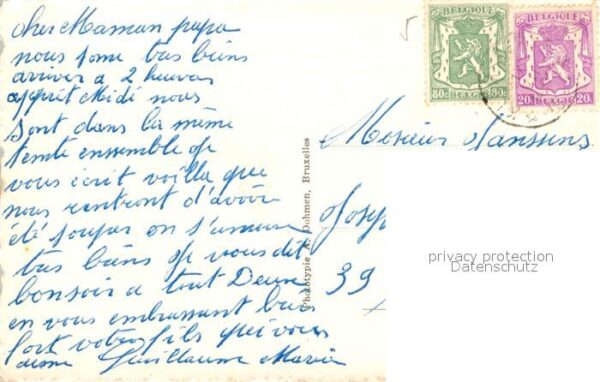 cher Maman papa
nous some tres biens
arriver a 2 heures
apprét Midi nous
sont dans la même
tente ensemble je
vous écrit voilla que
nous rentront d'avoir
été souper on s'amuse
tres biens je vous dit
bonsoir a tout Deux
en vous embrassant bien
fort votre fils qui vous
aime Guillaume Marie
BELGIQUE
80c 80c
BELGIE
BELGIQUE
20c 20c
BELGIE
Mesieur Janssens
Josep
39
Phototypie A. Dohmen, Bruxelles
privacy protection
Datenschutz